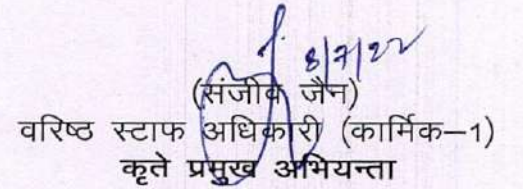 8/7/22
(संजीव जैन)
वरिष्ठ स्टाफ अधिकारी (कार्मिक–1)
कृते प्रमुख अभियन्ता